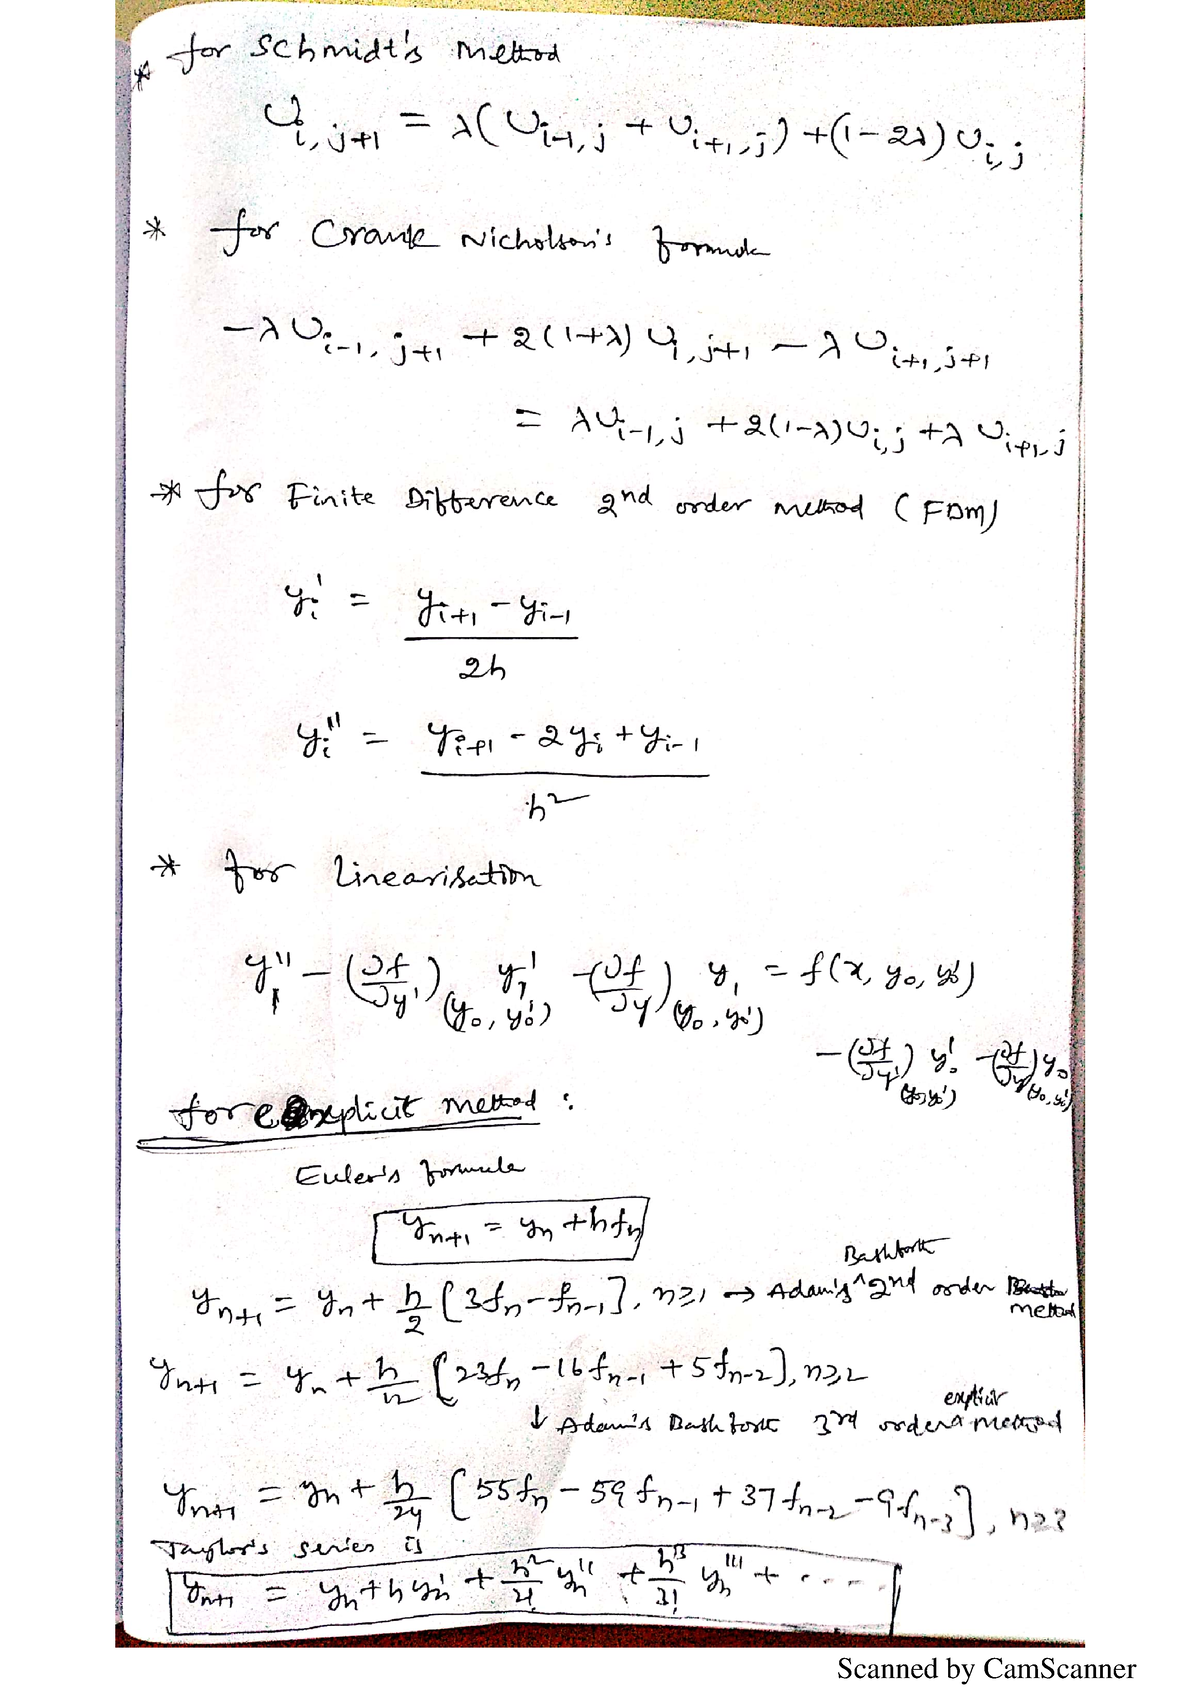 * for Schmidt's method
U_{i,j+1} = λ(U_{i-1,j} + U_{i+1,j}) + (1-2λ) U_{i,j}
* for Crank Nicholson's formula
-λU_{i-1,j+1} + 2(1+λ) U_{i,j+1} - λU_{i+1,j+1}
= λU_{i-1,j} + 2(1-λ)U_{i,j} + λU_{i+1,j}
* for Finite Difference 2nd order method (FDM)
y_i' = (y_{i+1} - y_{i-1}) / 2h
y_i'' = (y_{i+1} - 2y_i + y_{i-1}) / h²
* for Linearisation
y_1'' - (∂f/∂y')_{(y_0, y_0')} y_1' - (∂f/∂y)_{(y_0, y_0')} y_1 = f(x, y_0, y_0')
- (∂f/∂y')_{(y_0, y_0')} y_0' - (∂f/∂y)_{(y_0, y_0')} y_0
for explicit method :
Euler's formula
y_{n+1} = y_n + hf_n
y_{n+1} = y_n + h/2 [3f_n - f_{n-1}], n≥1 → Adam's ^Bashforth 2nd order method
y_{n+1} = y_n + h/12 [23f_n - 16f_{n-1} + 5f_{n-2}], n≥2
↓ Adam's Bashforth 3rd order ^explicit method
y_{n+1} = y_n + h/24 [55f_n - 59f_{n-1} + 37f_{n-2} - 9f_{n-3}], n≥3
Taylor's series is
y_{n+1} = y_n + hy_n' + h²/2! y_n'' + h³/3! y_n''' + .....
Scanned by CamScanner